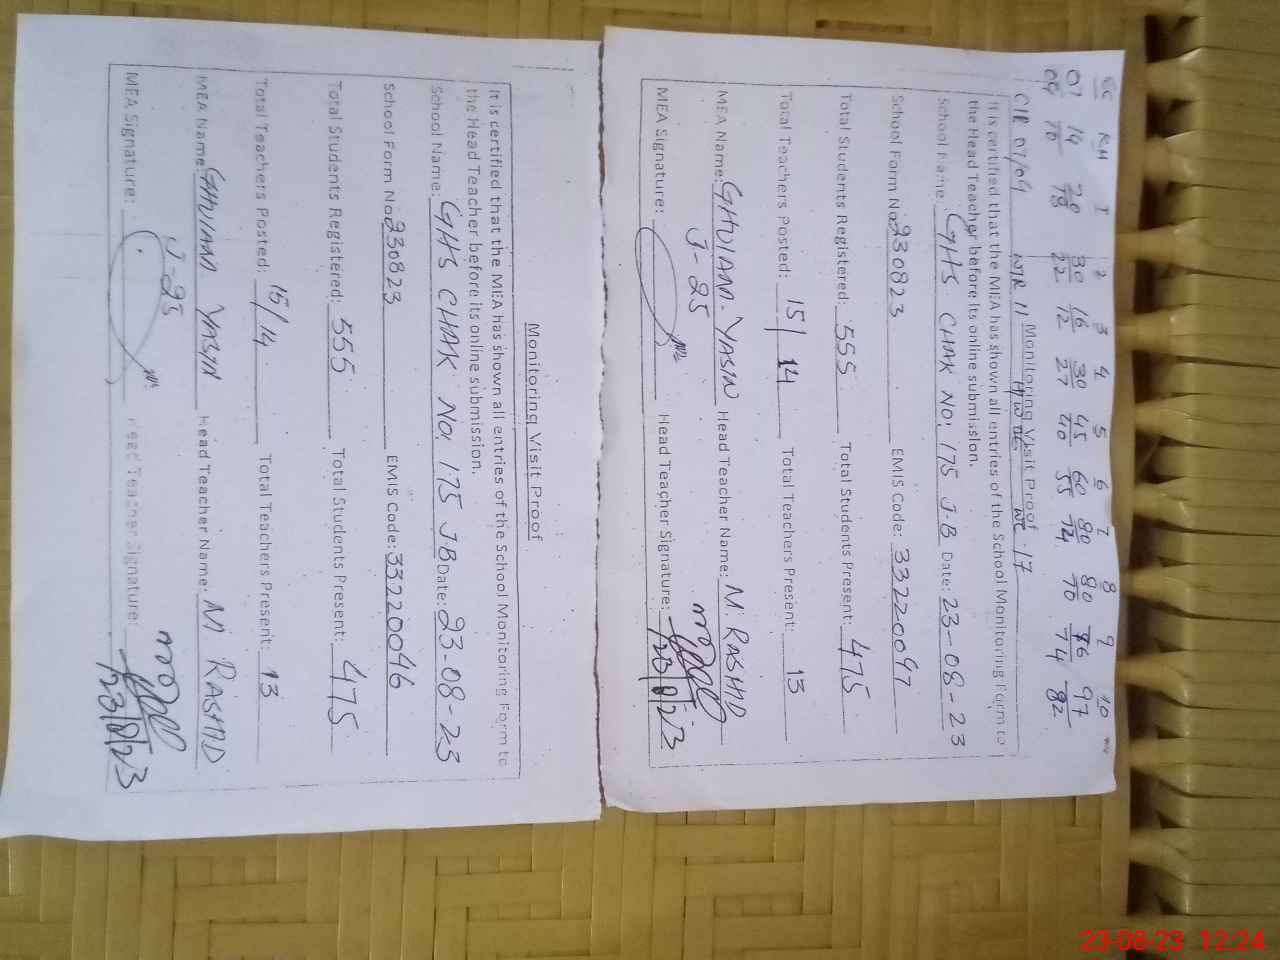 GC RM 1 2 3 4 5 6 7 8 9 10
07 14 20 30 16 30 45 60 80 80 76 97
04 10 18 22 12 27 40 55 72 70 74 82
CIR 07/04 NTR 11 17
Monitoring Visit Proof
It is certified that the MEA has shown all entries of the School Monitoring Form to
the Head Teacher before its online submission.
School Name: GHS CHAK NO: 175 J.B Date: 23-08-23
School Form No 230823 EMIS Code: 33220047
Total Students Registered: 555 Total Students Present: 475
Total Teachers Posted: 15/14 Total Teachers Present: 13
MEA Name: GHULAM YASIN Head Teacher Name: M. RASHID
J-25
MEA Signature: Head Teacher Signature:
23/8/23
Monitoring Visit Proof
It is certified that the MEA has shown all entries of the School Monitoring Form to
the Head Teacher before its online submission.
School Name: GHS CHAK NO: 175 J.B Date: 23-08-23
School Form No 230823 EMIS Code: 33220046
Total Students Registered: 555 Total Students Present: 475
Total Teachers Posted: 15/14 Total Teachers Present: 13
MEA Name: GHULAM YASIN Head Teacher Name: M RASHID
J-25
MEA Signature: Head Teacher Signature:
23/8/23
23-08-23 12:24